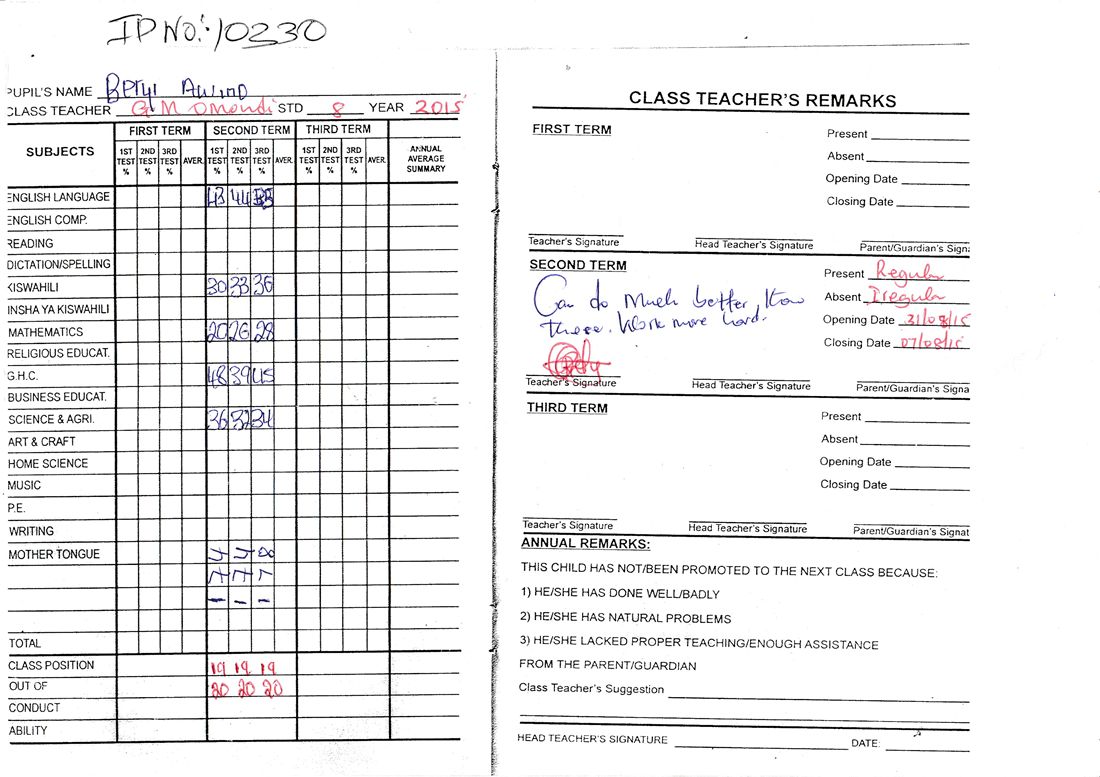 ID No:-10230
PUPIL'S NAME Beryl Awino
CLASS TEACHER G. M Omondi STD 8 YEAR 2015
SUBJECTS FIRST TERM SECOND TERM THIRD TERM ANNUAL AVERAGE SUMMARY
1ST TEST % 2ND TEST % 3RD TEST % AVER. 1ST TEST % 2ND TEST % 3RD TEST % AVER. 1ST TEST % 2ND TEST % 3RD TEST % AVER.
ENGLISH LANGUAGE 43 44
ENGLISH COMP.
READING
DICTATION/SPELLING
KISWAHILI 30 33 36
INSHA YA KISWAHILI
MATHEMATICS 20 26 28
RELIGIOUS EDUCAT.
G.H.C. 48 39 45
BUSINESS EDUCAT.
SCIENCE & AGRI. 36 32 34
ART & CRAFT
HOME SCIENCE
MUSIC
P.E.
WRITING
MOTHER TONGUE
TOTAL
CLASS POSITION 19 19 19
OUT OF 20 20 20
CONDUCT
ABILITY
CLASS TEACHER'S REMARKS
FIRST TERM
Present
Absent
Opening Date
Closing Date
Teacher's Signature Head Teacher's Signature Parent/Guardian's Signa
SECOND TERM
Can do much better than
these. Work more hard.
Present Regular
Absent Iregular
Opening Date 31/08/15
Closing Date 07/08/15
Teacher's Signature Head Teacher's Signature Parent/Guardian's Signa
THIRD TERM
Present
Absent
Opening Date
Closing Date
Teacher's Signature Head Teacher's Signature Parent/Guardian's Signat
ANNUAL REMARKS:
THIS CHILD HAS NOT/BEEN PROMOTED TO THE NEXT CLASS BECAUSE:
1) HE/SHE HAS DONE WELL/BADLY
2) HE/SHE HAS NATURAL PROBLEMS
3) HE/SHE LACKED PROPER TEACHING/ENOUGH ASSISTANCE
FROM THE PARENT/GUARDIAN
Class Teacher's Suggestion
HEAD TEACHER'S SIGNATURE DATE: